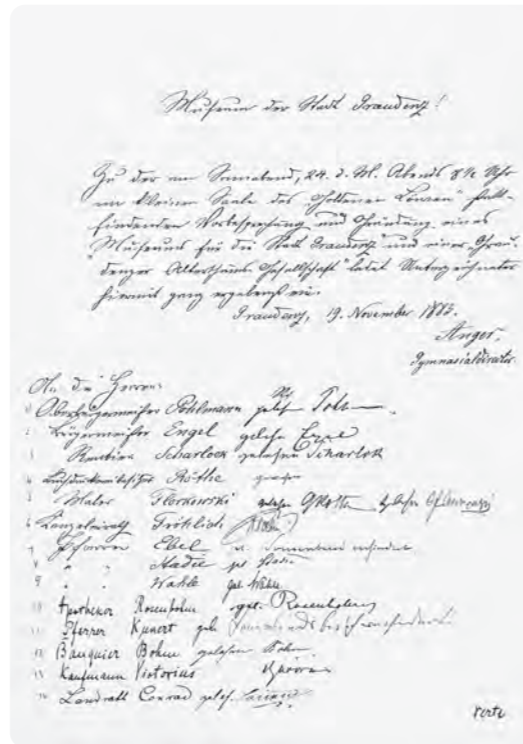 Museum der Stadt Graudenz!
Zu der am Sonnabend, 24. d. Mts. Abends 8½ Uhr
im kleinen Saale des „Goldenen Löwen“ statt-
findenden Vorbesprechung und Gründung eines
Museums für die Stadt Graudenz und einer „Grau-
denzer Alterthums Gesellschaft“ ladet Unterzeichneter
hiermit ganz ergebenst ein.
Graudenz, 19. November 1883.
Anger,
Gymnasialdirector.
An die Herren:
1 Oberbürgermeister Pohlmann gelesen
2 Bürgermeister Engel gelesen Engel
3 Rentier Scharlok gelesen Scharlok
4 Buchdruckereibesitzer Röthe gelesen
5 Maler Florkowski gelesen
6 Kanzleirath Fröhlich
7 Pfarrer Ebel Sonnabend verhindert
8 " " Hadie
9 " " Wahle gel. Wahle
10 Apotheker Rosenbohm gel. Rosenbohm
11 Pfarrer Kunert gel.
12 Banquier Bohm gelesen Bohm
13 Kaufmann Victorius
14 Landrath Conrad geles. Conrad
verte